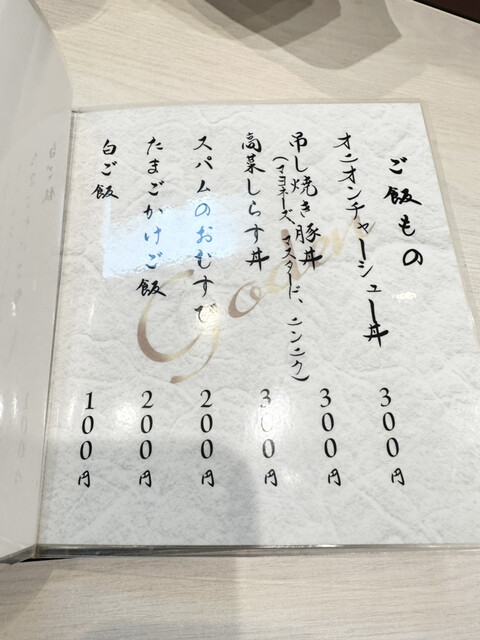 ご飯もの
オニオンチャーシュー丼 300円
吊し焼き豚丼 300円
(マヨネーズ、マスタード、ニンニク)
高菜しらす丼 300円
スパムのおむすび 200円
たまごかけご飯 200円
白ご飯 100円